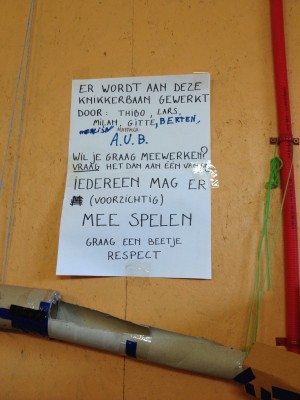 ER WORDT AAN DEZE
KNIKKERBAAN GEWERKT
DOOR: THIBO, LARS,
MILAN, GITTE, BERTEN,
A.U.B.
WIL JE GRAAG MEEWERKEN?
VRAAG HET DAN AAN ÉÉN VAN
IEDEREEN MAG ER
(VOORZICHTIG)
MEE SPELEN
GRAAG EEN BEETJE
RESPECT